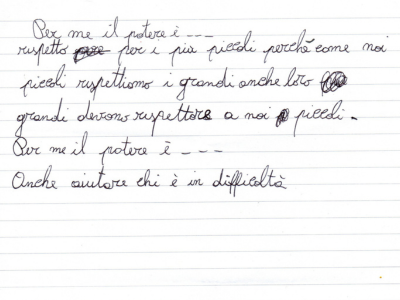 Per me il potere è ---
rispetto per i più piccoli perché come noi
piccoli rispettiamo i grandi anche loro
grandi devono rispettare a noi piccoli.
Per me il potere è ---
Anche aiutare chi è in difficoltà